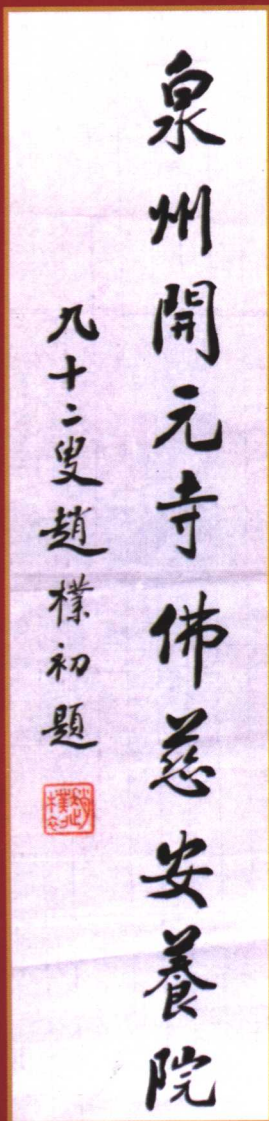 泉州開元寺佛慈安養院
九十二叟趙樸初題
趙樸初